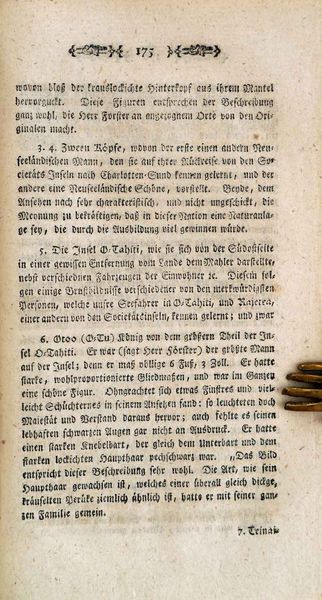 175
wovon bloß der krauslockichte Hinterkopf aus ihrem Mantel
hervorguckt. Diese Figuren entsprechen der Beschreibung
ganz wohl, die Herr Forster an angezognem Orte von den Ori-
ginalen macht.
3. 4. Zween Köpfe, wovon der erste einen andern Neu-
seeländischen Mann, den sie auf ihrer Rückreise von den So-
cietäts Inseln nach Charlotten-Sund kennen gelernt, und der
andere eine Neuseeländische Schöne, vorstellt. Beyde, dem
Ansehen nach sehr charakteristisch, und nicht ungeschickt, die
Meynung zu bekräftigen, daß in dieser Nation eine Naturanla-
ge sey, die durch die Ausbildung viel gewinnen würde.
5. Die Insel O-Tahiti, wie sie sich von der Südostseite
in einer gewissen Entfernung vom Lande dem Mahler darstellte,
nebst verschiednen Fahrzeugen der Einwohner ꝛc. Diesem fol-
gen einige Brustbildnisse verschiedener von den merkwürdigsten
Personen, welche unsre Seefahrer in O-Tahiti, und Rajetea,
einer andern von den Societätsinseln, kennen gelernt; und zwar
6. Otoo (O-Tu) König von dem größern Theil der In-
sel O-Tahiti. Er war (sagt Herr Forster) der größte Mann
auf der Insel; denn er maß völlige 6 Fuß, 3 Zoll. Er hatte
starke, wohlproportionirte Gliedmaßen, und war im Ganzen
eine schöne Figur. Ohngeachtet sich etwas Finstres und viel-
leicht Schüchternes in seinem Ansehen fand: so leuchteten doch
Majestät und Verstand daraus hervor; auch fehlte es seinen
lebhaften schwarzen Augen gar nicht an Ausdruck. Er hatte
einen starken Knebelbart, der gleich dem Unterbart und dem
starken lockichten Haupthaar pechschwarz war. „Das Bild
entspricht dieser Beschreibung sehr wohl. Die Art, wie sein
Haupthaar gewachsen ist, welches einer überall gleich dicken,
kräuselten Perüke ziemlich ähnlich ist, hatte er mit seiner gan-
zen Familie gemein.
7. Trinai-